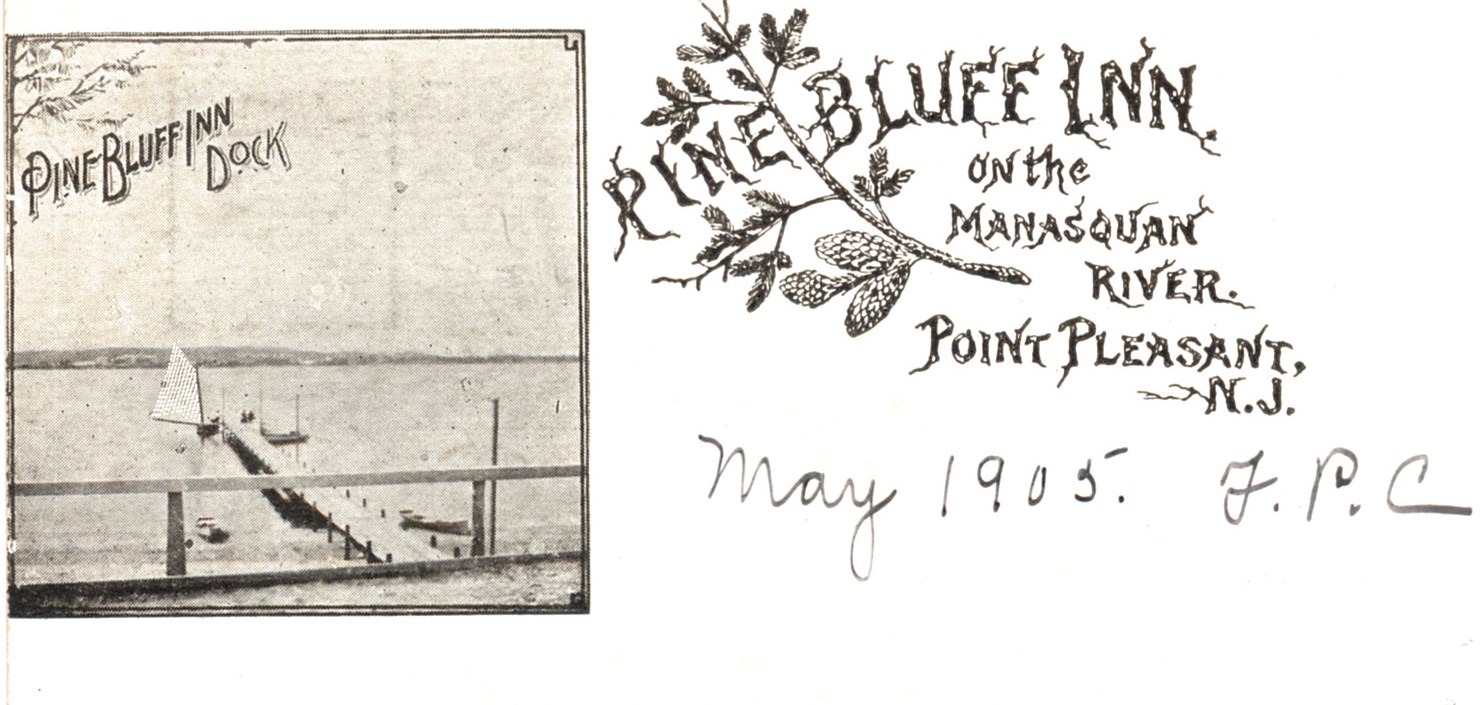 PINE BLUFF INN
DOCK
PINE BLUFF INN.
ON the
MANASQUAN
RIVER.
POINT PLEASANT,
N.J.
May 1905. F. P. C